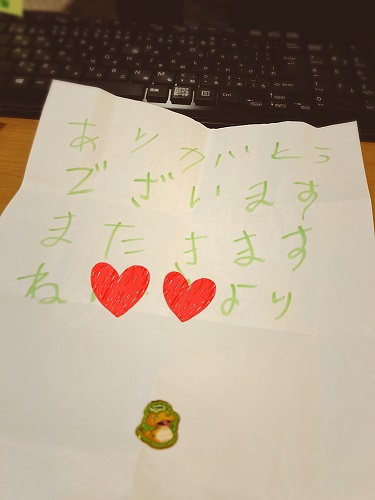 ありがとう
でざいます
またきます
ね より